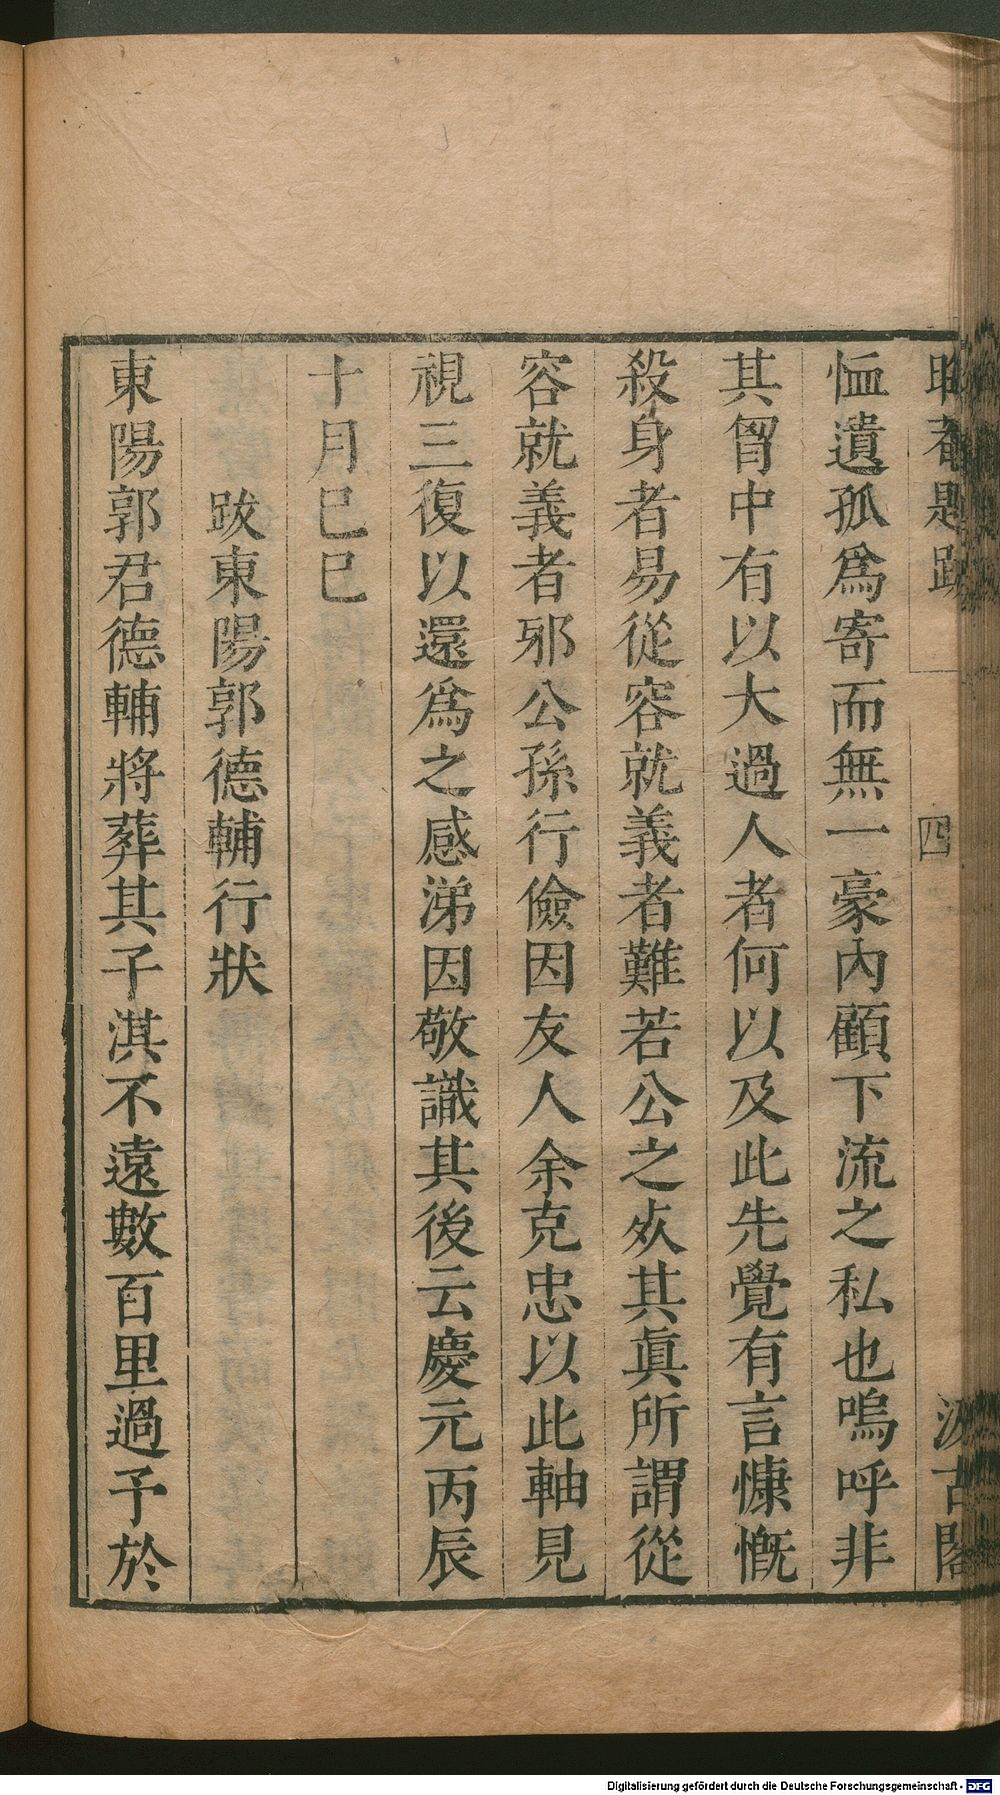 晦菴題跋 四 汲古閣
恤遺孤爲寄而無一豪內顧下流之私也嗚呼非
其胷中有以大過人者何以及此先覺有言慷慨
殺身者易從容就義者難若公之歿其眞所謂從
容就義者邪公孫行儉因友人余克忠以此軸見
視三復以還爲之感涕因敬識其後云慶元丙辰
十月己巳
跋東陽郭德輔行狀
東陽郭君德輔將葬其子淇不遠數百里過予於
Digitalisierung gefördert durch die Deutsche Forschungsgemeinschaft - DFG